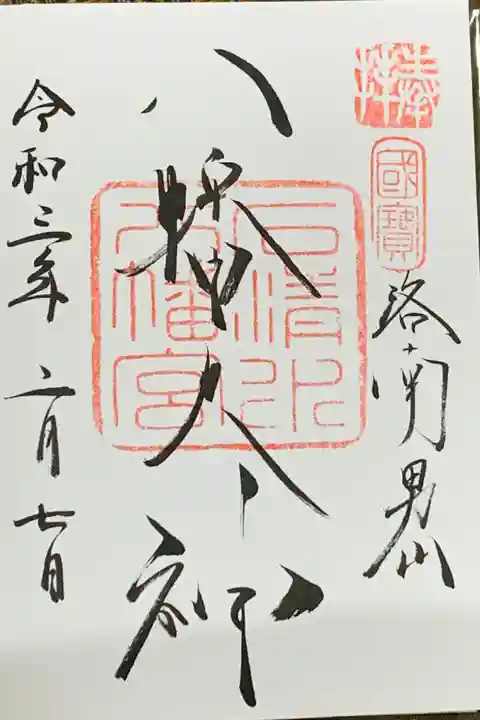 奉拝
國寶
洛南男山
八幡大御神
石清水
八幡宮
令和三年二月七日